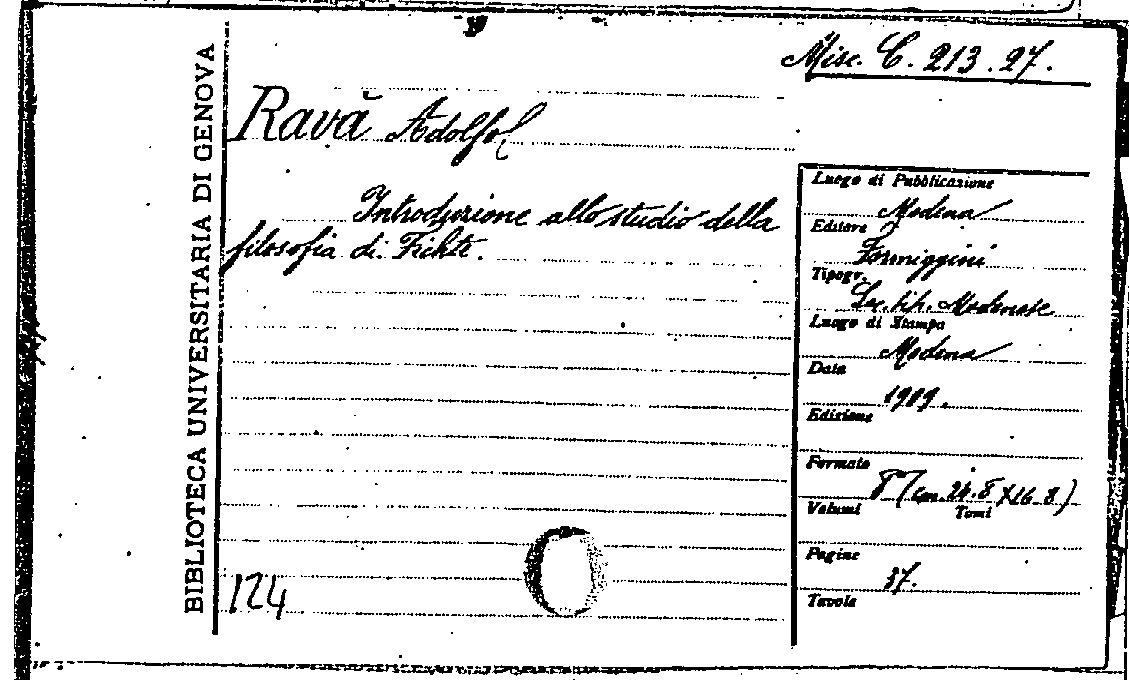 Misc. C. 213.27.
BIBLIOTECA UNIVERSITARIA DI GENOVA
Ravà Adolfo
Introduzione allo studio della
filosofia di Fichte.
124
Luogo di Pubblicazione
Modena
Editore
Formiggini
Tipogr.
Soc. tip. Modenese
Luogo di Stampa
Modena
Data
1909.
Edizione
Formato
8° (cm. 26.8 x 16.8)
Volumi Tomi
Pagine
37.
Tavole